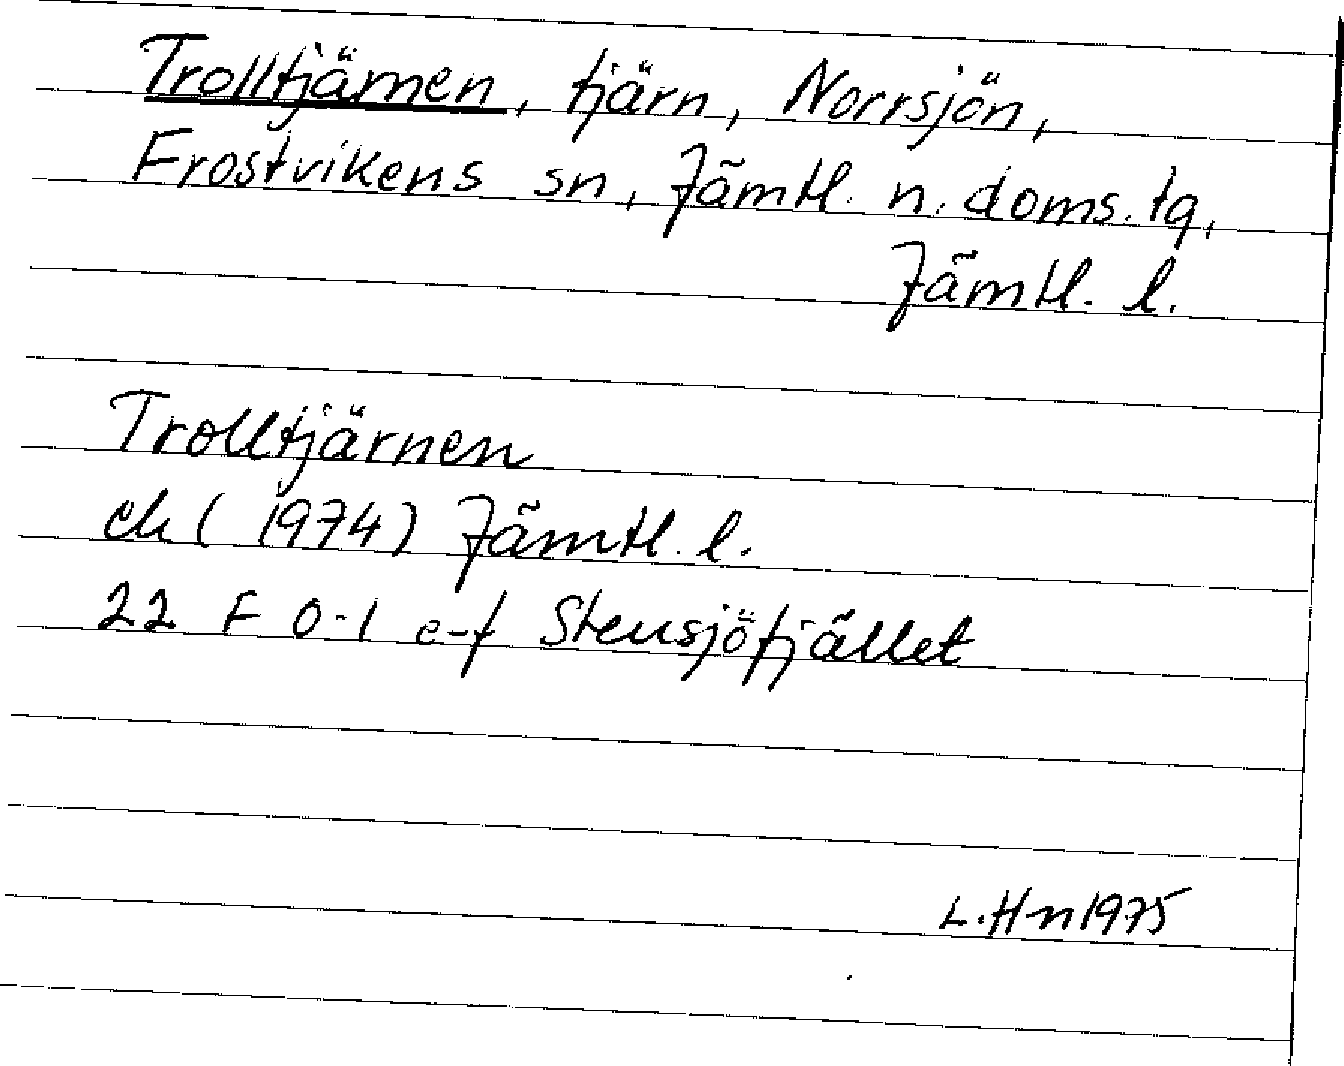 Trolltjärnen, tjärn, Norrsjön,
Frostvikens sn, Jämtl. n. doms. tg,
Jämtl. l.
Trolltjärnen
ek (1974) Jämtl. l.
22 F 0-1 e-f Stensjöfjället
L. Hn 1975